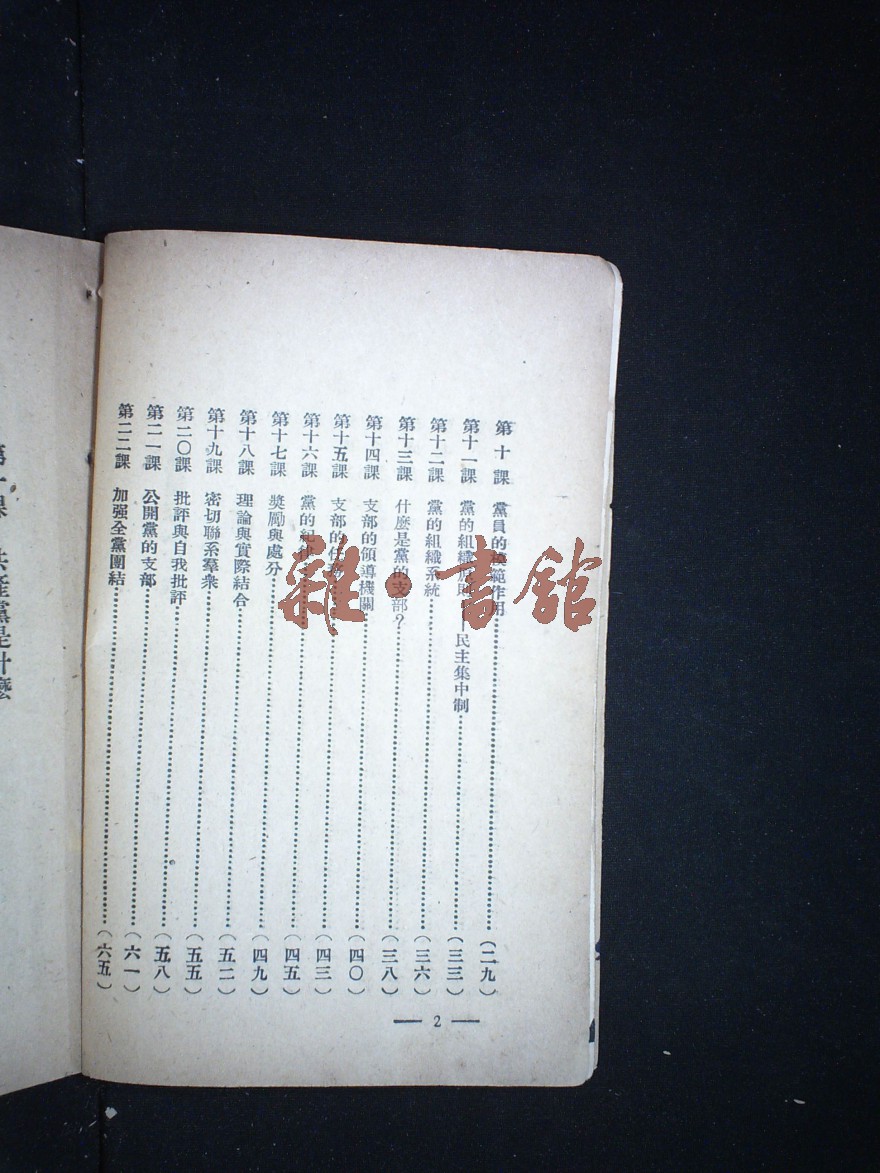 第十課 黨員的模範作用……(二九)
第十一課 黨的組織原則——民主集中制……(三三)
第十二課 黨的組織系統……(三六)
第十三課 什麼是黨的支部?……(三八)
第十四課 支部的領導機關……(四〇)
第十五課 支部的任務……(四三)
第十六課 黨的紀律……(四五)
第十七課 獎勵與處分……(四九)
第十八課 理論與實際結合……(五二)
第十九課 密切聯系羣衆……(五五)
第二〇課 批評與自我批評……(五八)
第二一課 公開黨的支部……(六一)
第二二課 加强全黨團結……(六五)
— 2 —
第一課 共產黨是什麼
雜·書館